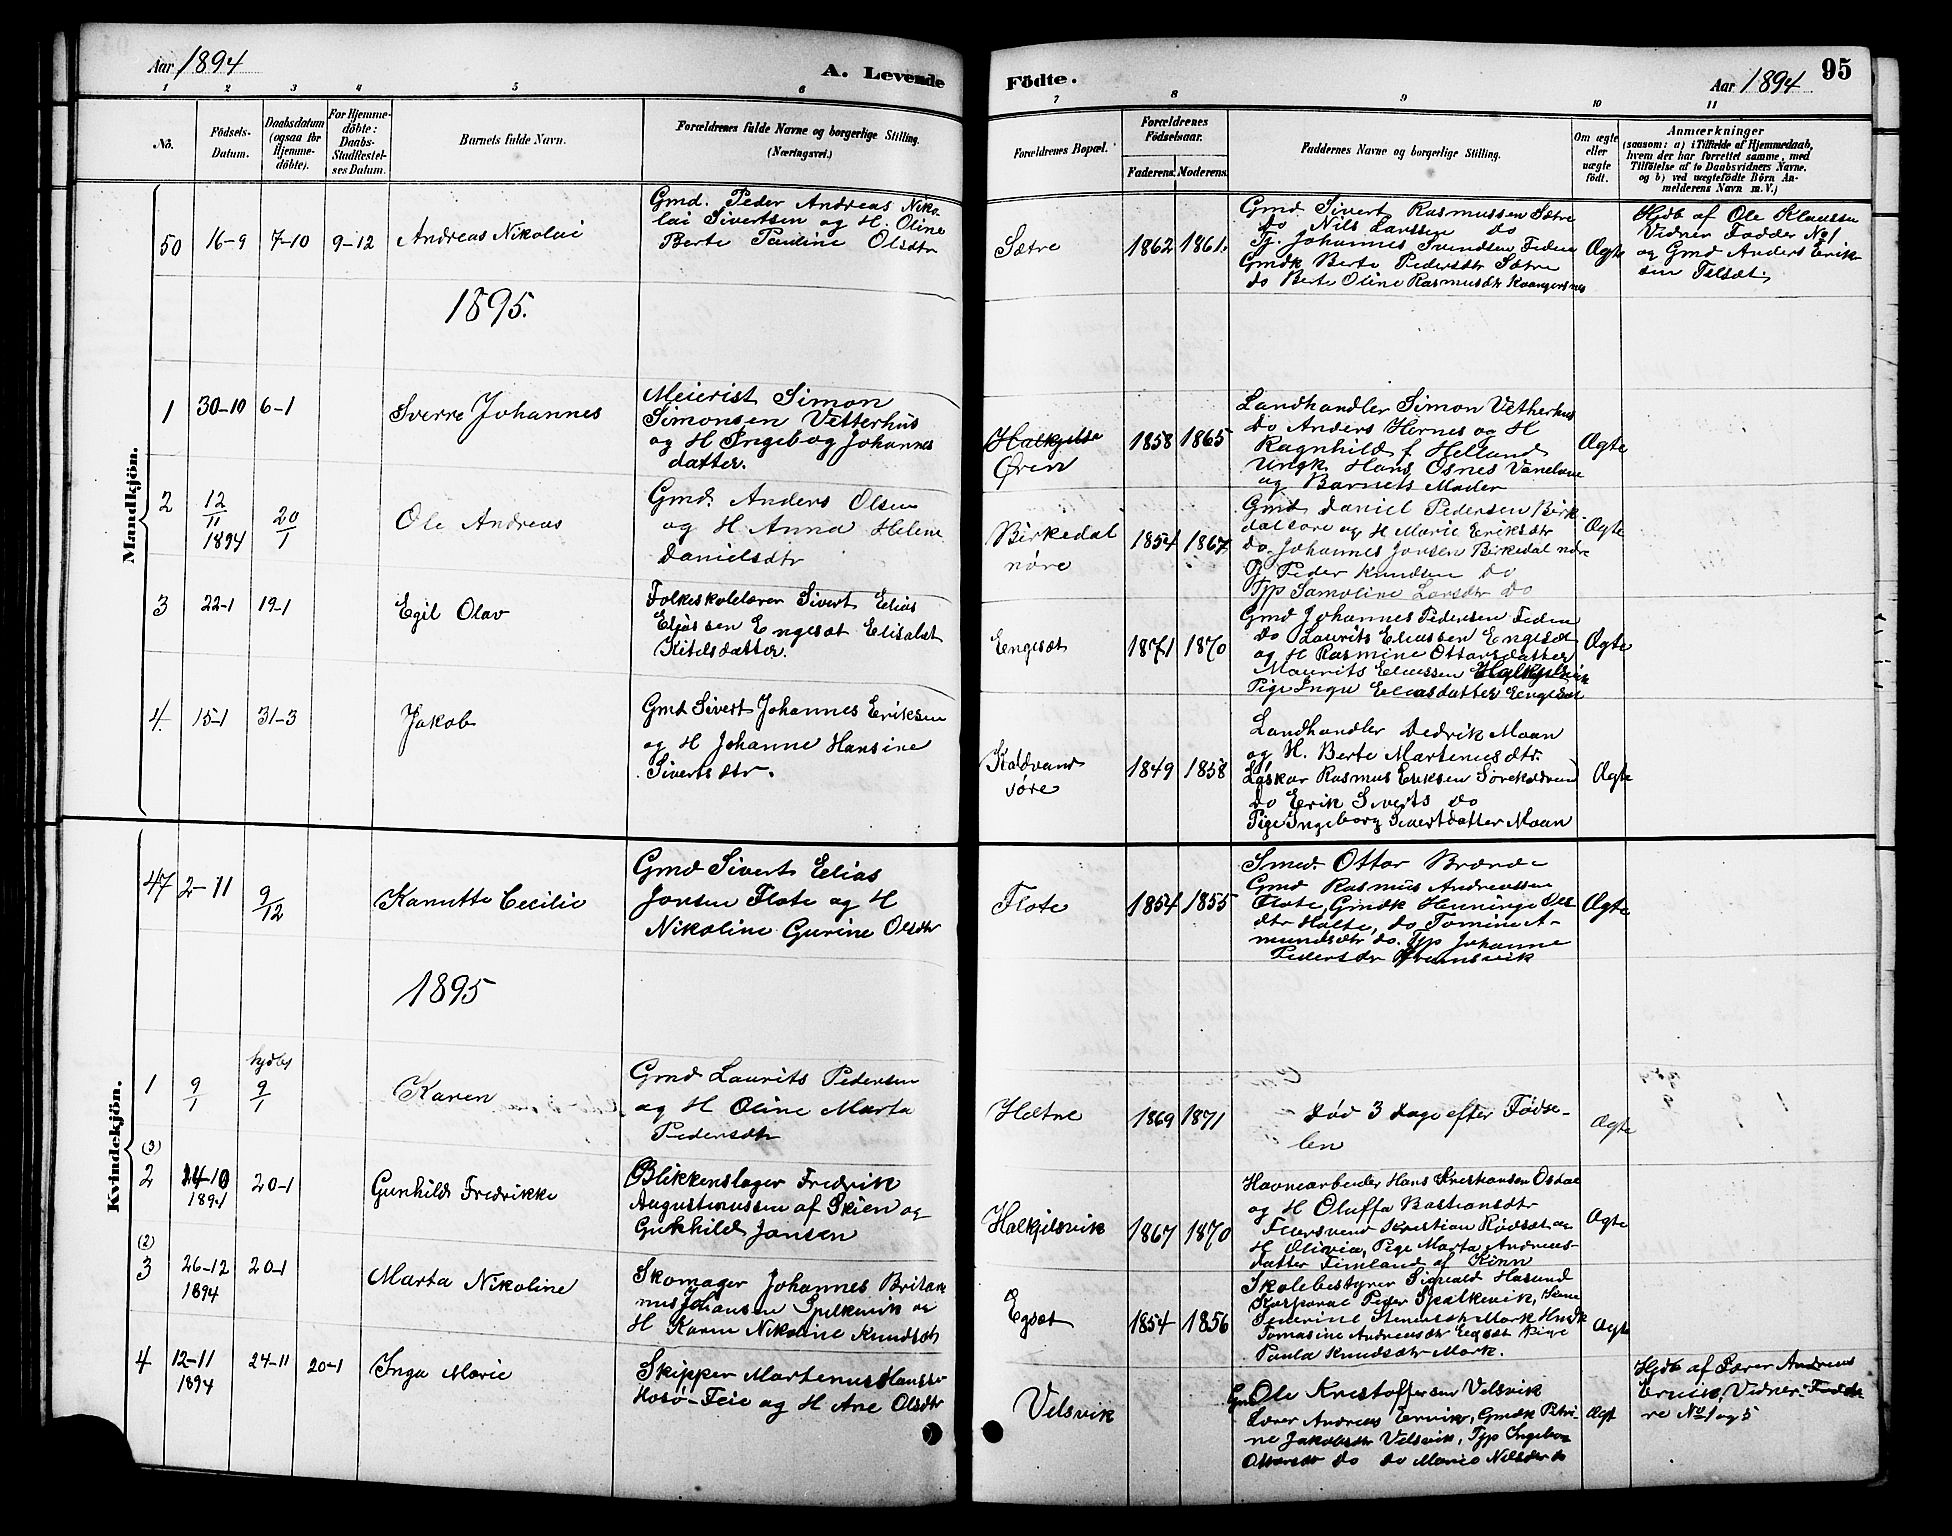 Aar 1894
A. Levende
Födte.
Aar 1894
95
1 2 3 4 5 6 7 8 9 10 11
No.
Födsels-
Datum.
Daabsdatum
(ogsaa för
Hjemme-
döbte).
For Hjemme-
döbte:
Daabs-
Stadfæstel-
ses Datum.
Barnets fulde Navn.
Forældrenes fulde Navne og borgerlige Stilling.
(Næringsvei.)
Forældrenes Bopæl.
Forældrenes
Födselsaar.
Faderens. Moderens.
Faddernes Navne og borgerlige Stilling.
Om ægte
eller
uægte
födt.
Anmærkninger
(saasom: a) i Tilfælde af Hjemmedaab,
hvem der har forrettet samme, med
Tilföielse af to Daabsvidners Navne.
og b) ved uægtefödte Börn An-
melderens Navn m. V.)
Mandkjön.
50 16-9 7-10 9-12 Andreas Nikolai
Gmd. Peder Andreas Niko-
lai Sivertsen og H. Oline
Berte Pauline Olsdtr
Sætre 1862 1861.
Gmd Sivert Rasmussen Sætre
do Nils Larssen do
Tj. Johannes Svendsen
Gmdk Berte Pedersdtr Sætre
do Berte Oline Rasmusdtr
Ægte
Hjdb af Ole Klaussen
Vidner Fadder No 1
og Gmd Anders Erik-
sen
1895.
1 30-10 6-1 Sverre Johannes
Meierist Simon
Simonsen Vetterhus
og H Ingebog Johannes
datter.
Halkjelsv
Øren 1858 1865
Landhandler Simon Vetherhus
do Anders Hernes og H
Ragnhild f Helland
Ungk. Hans Osnes
og Barnets Moder
Ægte
2 12/11 1894 20/1 Ole Andreas
Gmd. Anders Olsen
og H Anna Helene
Danielsdtr
Birkedal
nøre 1854 1867
Gmd Daniel Pedersen Birk-
dal søre og H Marie Eriksdtr
do. Johannes Jonsen Birkedal nøre
Peder Knudsen do
Typ Samoline Larsdtr do
Ægte
3 22-1 19-1 Egil Olav
Folkeskolelærer Sivert Elias
Eliassen Engesæt Elisabet
Kitelsdatter.
Engesæt 1871 1870
Gmd Johannes Pedersen
do Laurits Eliassen Engesæt
og H Rasmine Ottarsdatter
Maurits Eliassen Halkjelsvik
Pige Inga Eliasdatter Engesæt
Ægte
4. 15-1 31-3 Jakob
Gmd Sivert Johannes Eriksen
og H Johanne Hansine
Sivertsdtr.
Kaldvand
søre 1849 1858
Landhandler Dedrik Maan
og H. Berte Martenusdtr.
Laskar Rasmus Eriksen
do Erik Siverts do
Pige Ingeborg Sivertdatter Maan
Ægte
Kvindekjön.
47 2-11 9/12 Kanutte Cecilie
Gmd Sivert Elias
Jonsen Flote og H
Nikoline Gurine Olsdtr
Flote 1854 1855
Smed. Ottar
Gmd Rasmus Andreassen
Flote, Gmdk Henninge Ols
dtr Holte, do Tomine A-
mundsdtr do. Typ Johanne
Pedersdtr
Ægte
1895
1 9/1 hjdbt 9/1 Karen
Gmd Laurits Pedersen
og H Oline Marta
Pedersdtr
Hætne 1869 1871
Død 3 Dage efter Fødse-
len
Ægte
(3)
2 24-10 1894 20-1 Gunhild Fredrikke
Blikkenslager Fredrik
Augustinussen af Skien og
Gunhild Jansen
Halkjelsvik 1867 1870
Havnearbeider Hans Kristiansen Osdal
og H Oluffa Bastiansdtr
Kristian Rødsæt og
H Olivia, Pige Marta Andreas-
datter Finland af Kinn
Ægte
(2)
3 26-12 1894 20-1 Marta Nikoline
Skomager Johannes Britan
nus Johansen Spilkevik og
H Karen Nikoline Knudsdtr
Egsæt 1854 1856
Skolebestyrer Sigvald Hasund
Korporal Peder Spilkevik,
Severine Steneesdtr Mork
Tomasine Andreasdtr Egsæt Pige
Paula Knudsdtr Mork.
Ægte
4 12-11 1894 24-11 20-1 Inga Marie
Skipper Martenus Hanssen
Hosø-Feie og H Ane Olsdtr
Velsvik
Gm Ole Kristoffersen Velsvik
Lærer Andreas Ervik, Gmdk Petri-
ne Jakobsdtr Velsvik, Typ Ingebor
Ottarsdtr do do Marie Nilsdtr do
Ægt
Hjdb af Lærer Andreas
Ervik, Vidner Fadde
re No 1 og 5